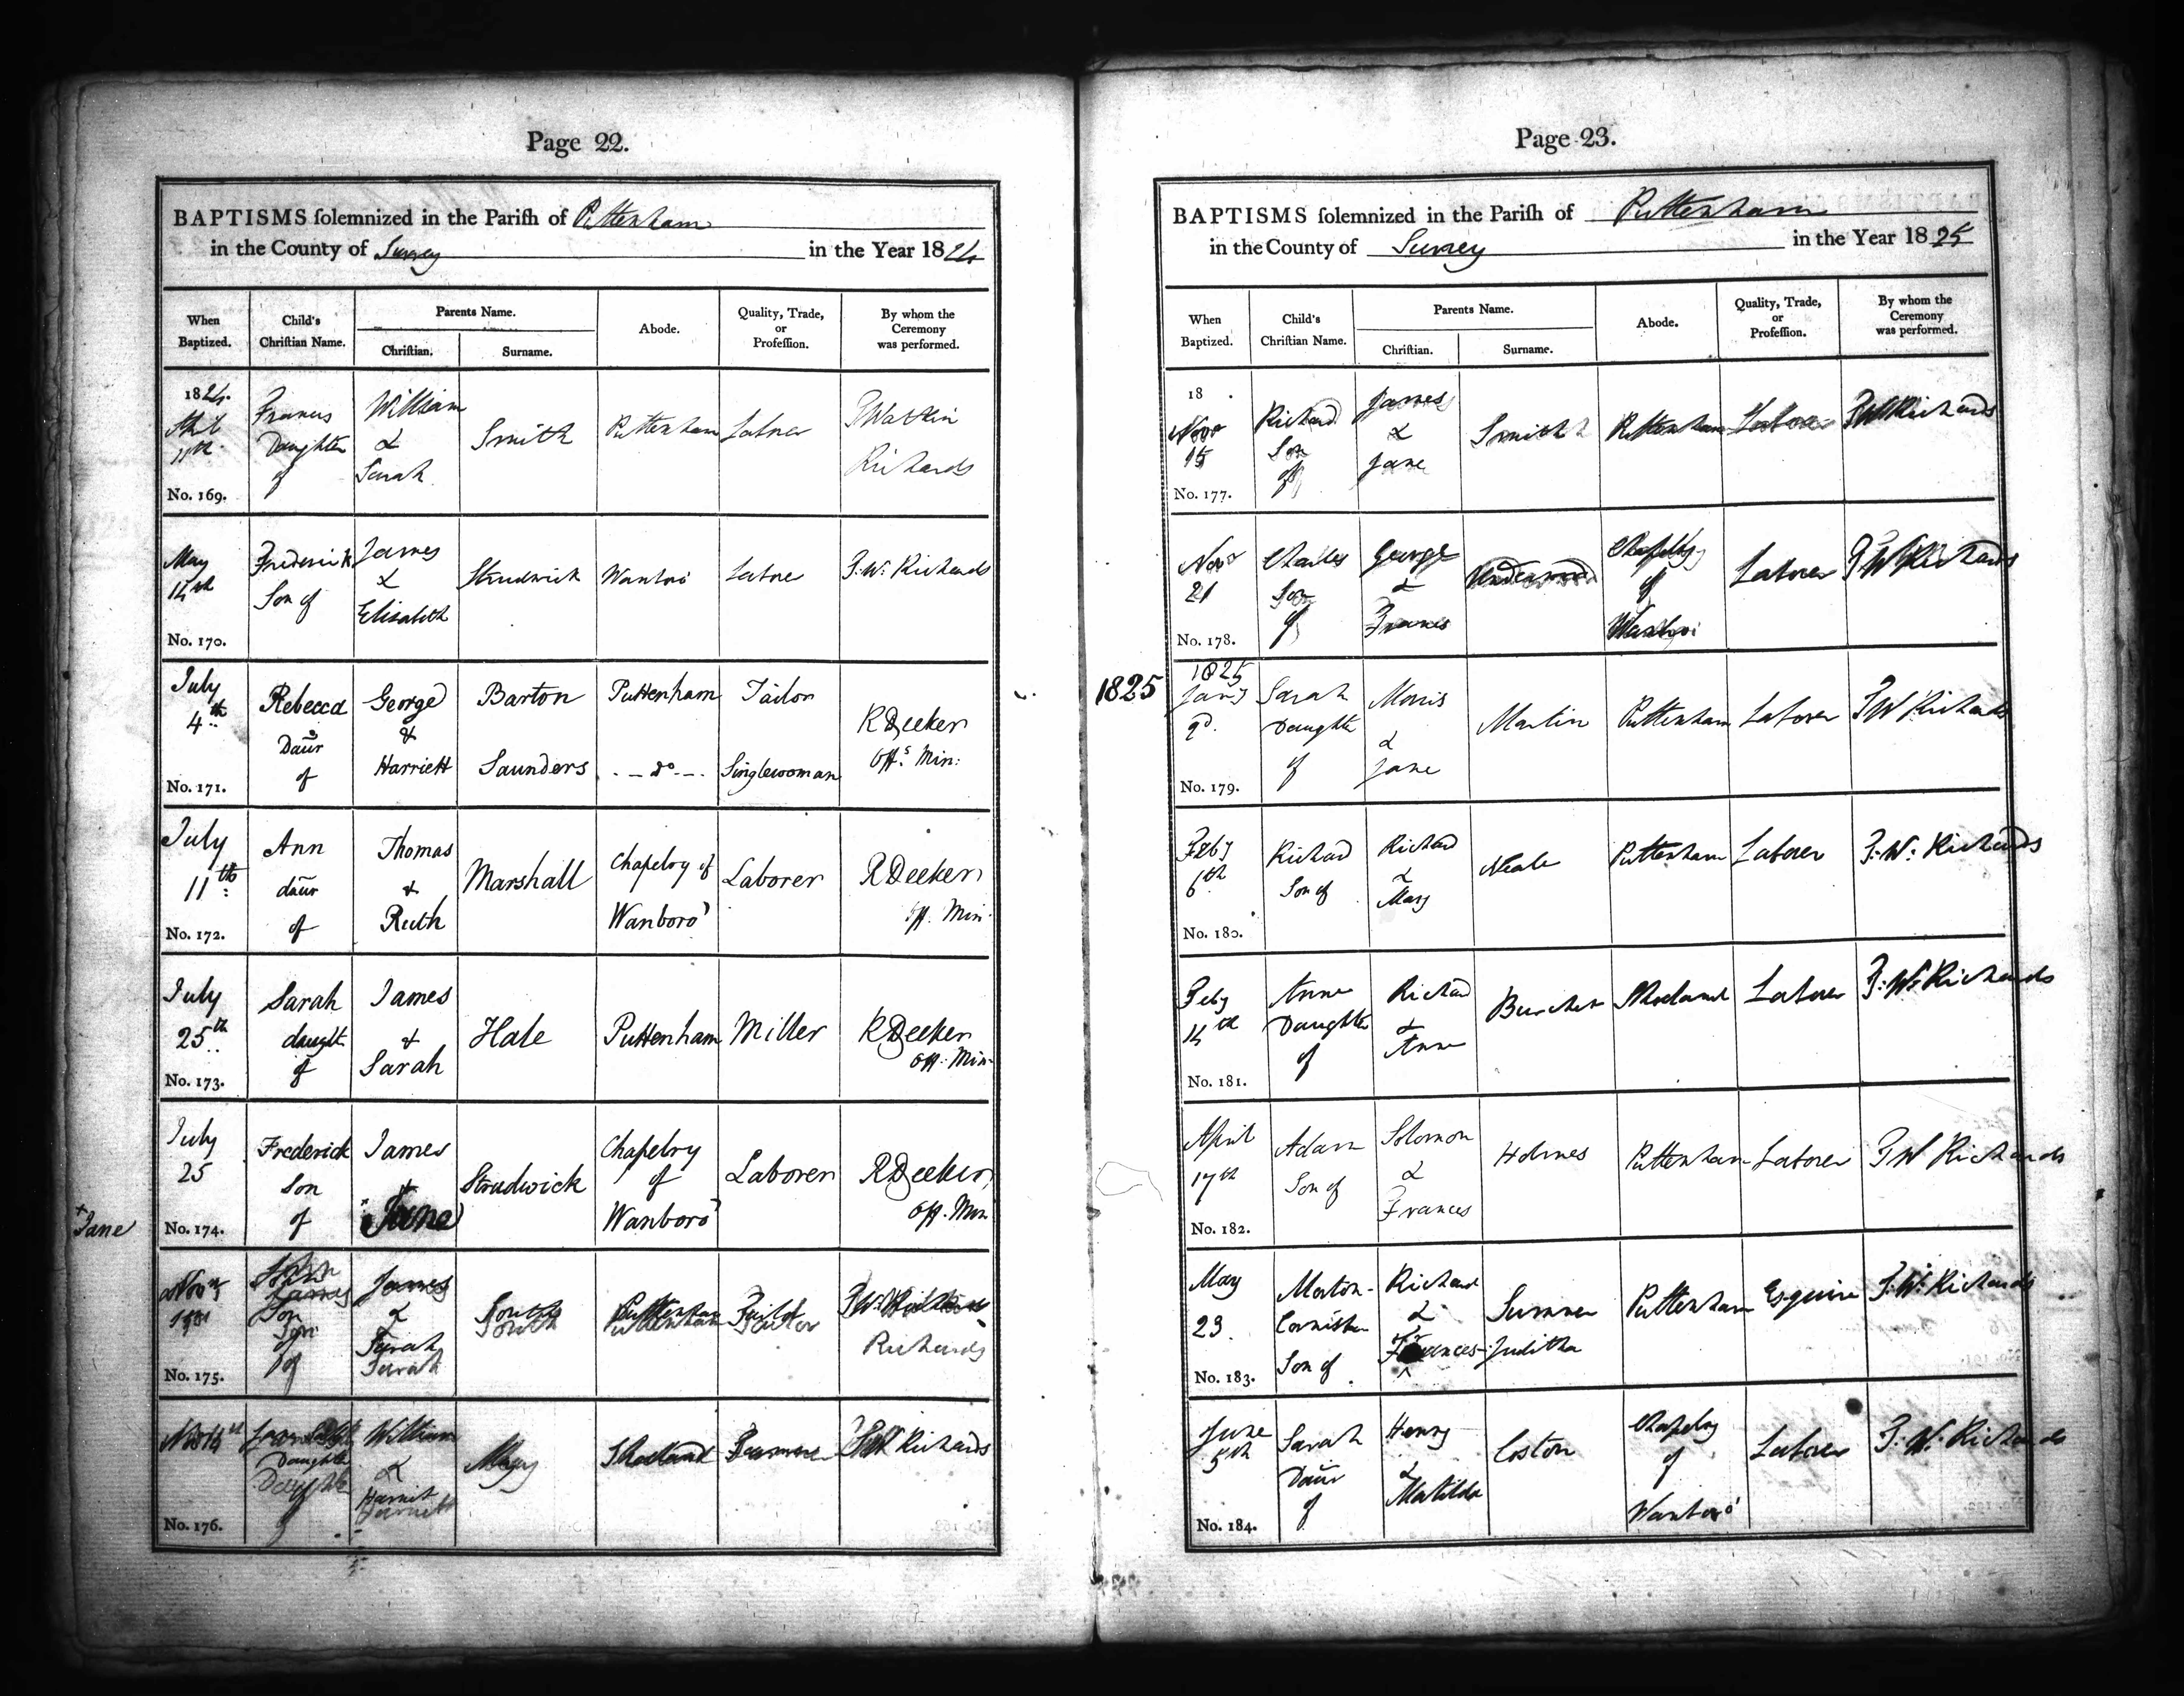 Page 22.
BAPTISMS solemnized in the Parish of Puttenham
in the County of Surrey in the Year 1824
When Baptized. Child's Christian Name. Parents Name. Christian. Surname. Abode. Quality, Trade, or Profession. By whom the Ceremony was performed.
1824.
11th
No. 169.
Frances
Daughter
of
William
&
Sarah
Smith
Puttenham
Laborer
T Watkin
Richards
May
14th
No. 170.
Frederick
Son of
James
&
Elizabeth
Strudwick
Wanboro'
Laborer
T. W. Richards
July
4th
No. 171.
Rebecca
Daur
of
George
&
Harriett
Barton
Saunders
Puttenham
- do -
Tailor
Singlewoman
R Deeker
Offs Min:
July
11th
No. 172.
Ann
daur
of
Thomas
&
Ruth
Marshall
Chapelry of
Wanboro'
Laborer
R Deeker
off. Min.
July
25th
No. 173.
Sarah
daught
of
James
&
Sarah
Hale
Puttenham
Miller
R Deeker
off. Min.
July
25
No. 174.
Frederick
Son
of
James
&
Jane
Strudwick
Chapelry
of
Wanboro'
Laborer
R Deeker
Off. Min
+
Jane
No. 175.
Son
of
James
&
Sarah
Sarah
South
Puttenham
T. W.
Richards
Novr 14th
No. 176.
Daughter
of
William
&
Harriet
Shoeland
T W Richards
Page 23.
BAPTISMS solemnized in the Parish of Puttenham
in the County of Surrey in the Year 1825
When Baptized. Child's Christian Name. Parents Name. Christian. Surname. Abode. Quality, Trade, or Profession. By whom the Ceremony was performed.
18
Novr
15
No. 177.
Richard
Son
of
James
&
Jane
Smith
Puttenham
Laborer
T W Richards
Novr
21
No. 178.
Charles
Son
of
George
&
Frances
Underwood
Chapelry
of
Wanboro'
Laborer
T W Richards
1825
1825
Jany
2d.
No. 179.
Sarah
Daughter
of
Moris
&
Jane
Martin
Puttenham
Laborer
T W Richards
Feby
6th
No. 180.
Richard
Son of
Richard
&
Mary
Neale
Puttenham
Laborer
T. W. Richards
Feby
14th
No. 181.
Anne
Daughter
of
Richard
&
Anne
Burchet
Shoeland
Laborer
T. W. Richards
April
17th
No. 182.
Adam
Son of
Solomon
&
Frances
Holmes
Puttenham
Laborer
T W Richards
May
23.
No. 183.
Morton
Cornish
Son of
Richard
&
Frances-
Sumner
Juditha
Puttenham
Esquire
T. W. Richards
June
5th
No. 184.
Sarah
Daur
of
Henry
&
Matilda
Coston
Chapelry
of
Wanboro'
Laborer
T. W. Richards